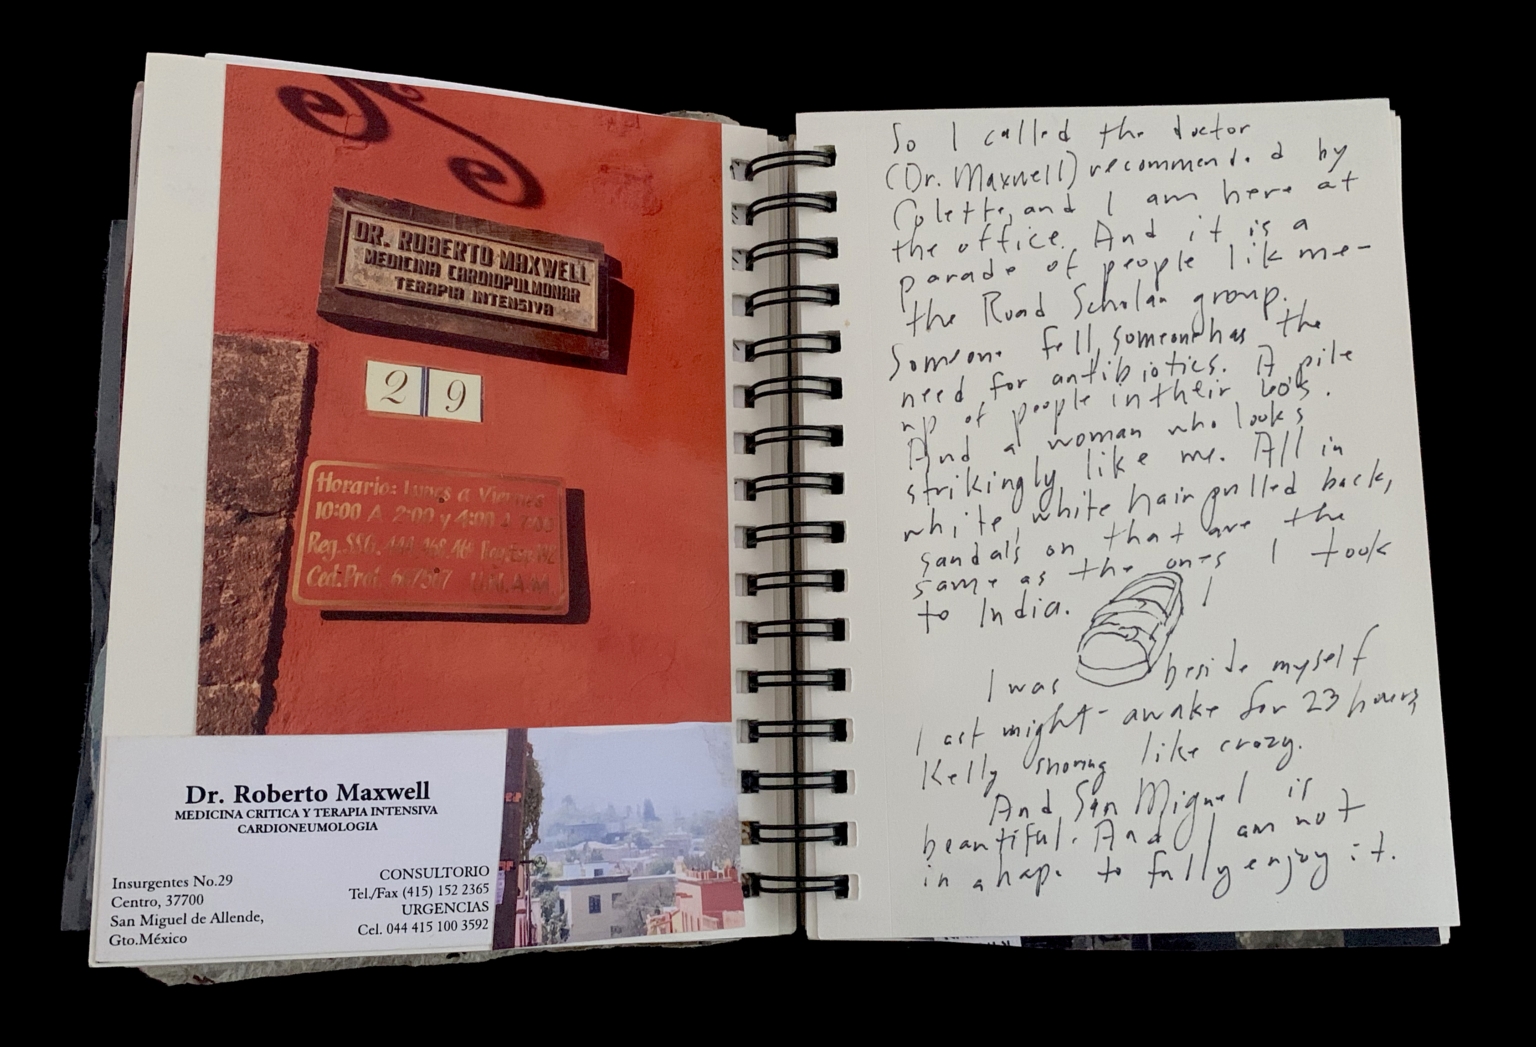 DR. ROBERTO MAXWELL
MEDICINA CARDIOPULMONAR
TERAPIA INTENSIVA
29
Horario: Lunes a Viernes
10:00 A 2:00 y 4:00 a 7:00
Reg. SSG.
Ced. Prof. 667567 U.N.A.M.
Dr. Roberto Maxwell
MEDICINA CRITICA Y TERAPIA INTENSIVA
CARDIONEUMOLOGIA
Insurgentes No.29
Centro, 37700
San Miguel de Allende,
Gto.México
CONSULTORIO
Tel./Fax (415) 152 2365
URGENCIAS
Cel. 044 415 100 3592
So I called the doctor
(Dr. Maxwell) recommended by
Colette, and I am here at
the office. And it is a
parade of people like me-
the Road Scholar group.
Someone fell, someone has the
need for antibiotics. A pile
up of people in their
And a woman who looks
strikingly like me. All in
white, white hair pulled back,
sandals on that are the
same as the ones I took
to India. !
I was beside myself
last night - awake for 23 hours,
Kelly snoring like crazy.
And San Miguel is
beautiful. And I am not
in shape to fully enjoy it.